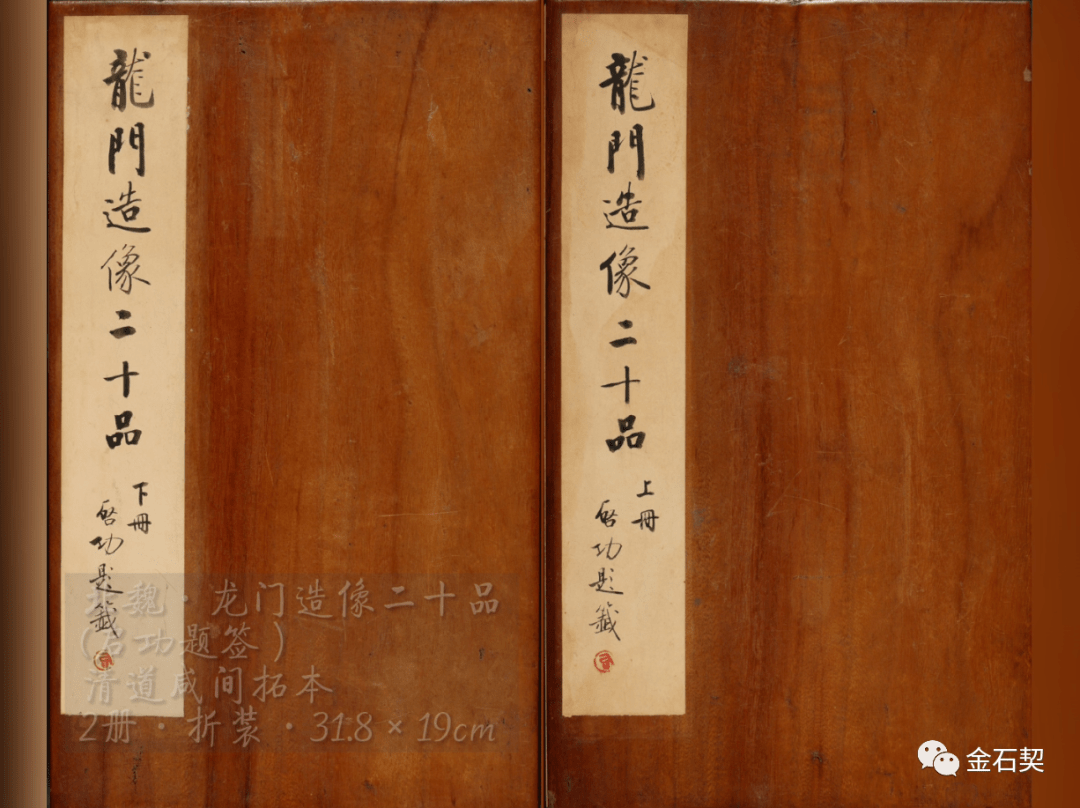 龍門造像二十品
上冊
啓功題籤
龍門造像二十品
下冊
啓功題籤
北魏·龙门造像二十品
(启功题签)
清道咸间拓本
2册·折装·31.8×19cm
金石契